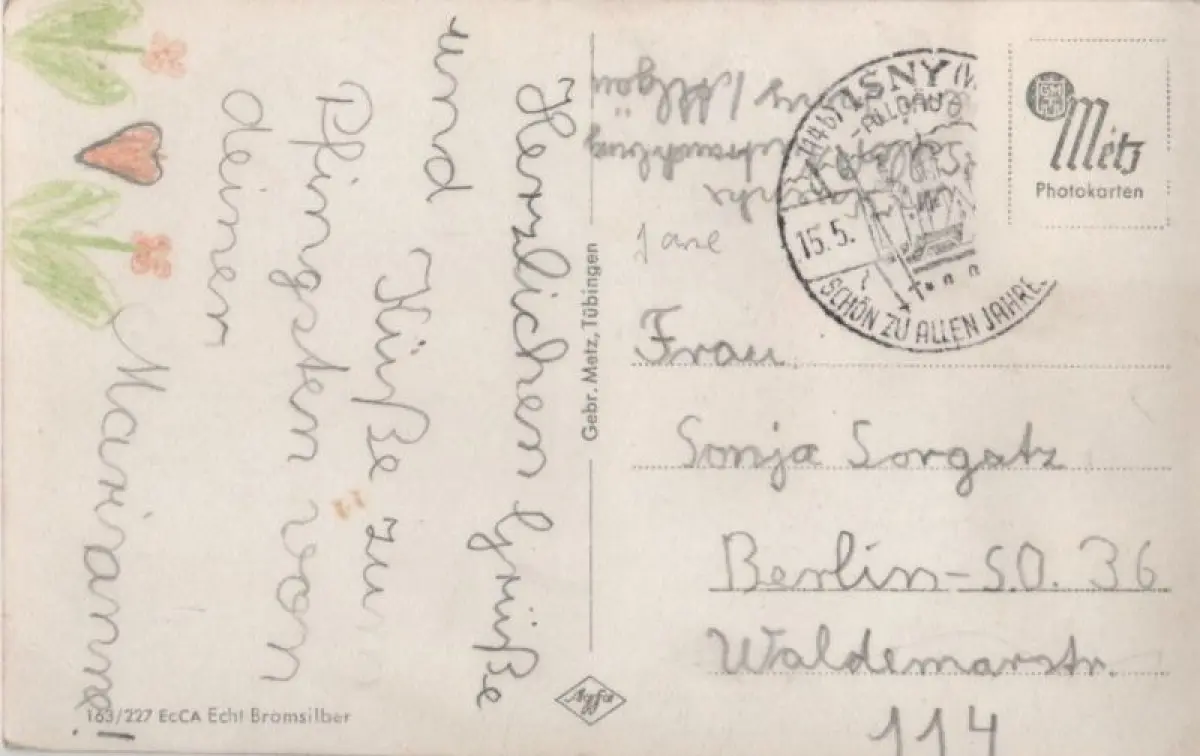 Herzlichen Grüße
und Küße zu
Pfingsten von
deiner
Marianne!
Frau
Sonja Sorgatz
Berlin-S.O. 36
Waldemarstr.
114
ISNY
-ALLGÄU
15.5.
SCHÖN ZU ALLEN JAHRE
Metz
Photokarten
Gebr. Metz, Tübingen
Agfa
163/227 EcCA Echt Bromsilber